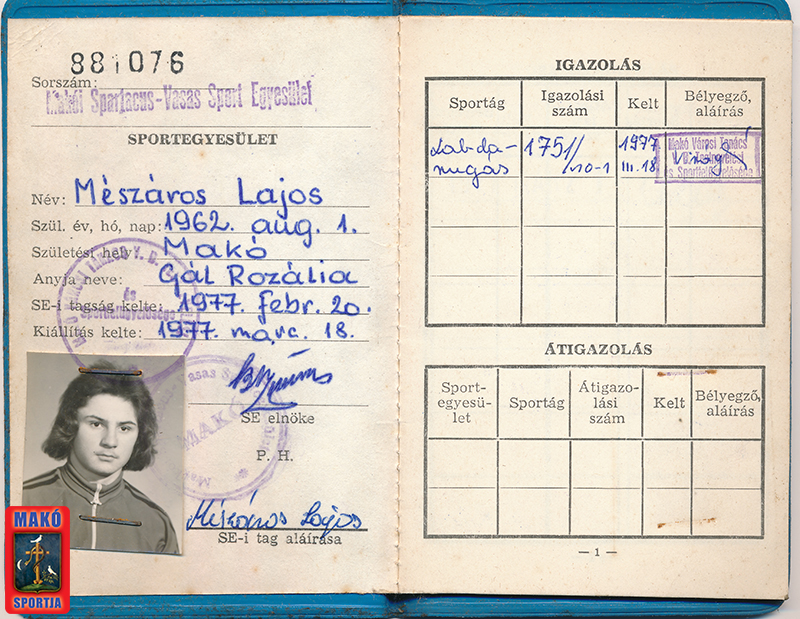 881076
Sorszám:
Makói Spartacus-Vasas Sport Egyesület
SPORTEGYESÜLET
Név: Mészáros Lajos
Szül. év, hó, nap: 1962. aug. 1.
Születési hely: Makó
Anyja neve: Gál Rozália
SE-i tagság kelte: 1977. febr. 20.
Kiállítás kelte: 1977. márc. 18.
SE elnöke
MAKÓ
P. H.
Mészáros Lajos
SE-i tag aláírása
MAKÓ
SPORTJA
IGAZOLÁS
Sportág
Igazolási szám
Kelt
Bélyegző, aláírás
Labda-
rúgás
1751/
10-1
1977
III. 18
Makó Városi Tanács
és Sportfelügyelősége
ÁTIGAZOLÁS
Sport-
egyesü-
let
Sportág
Átigazo-
lási
szám
Kelt
Bélyegző,
aláírás
— 1 —